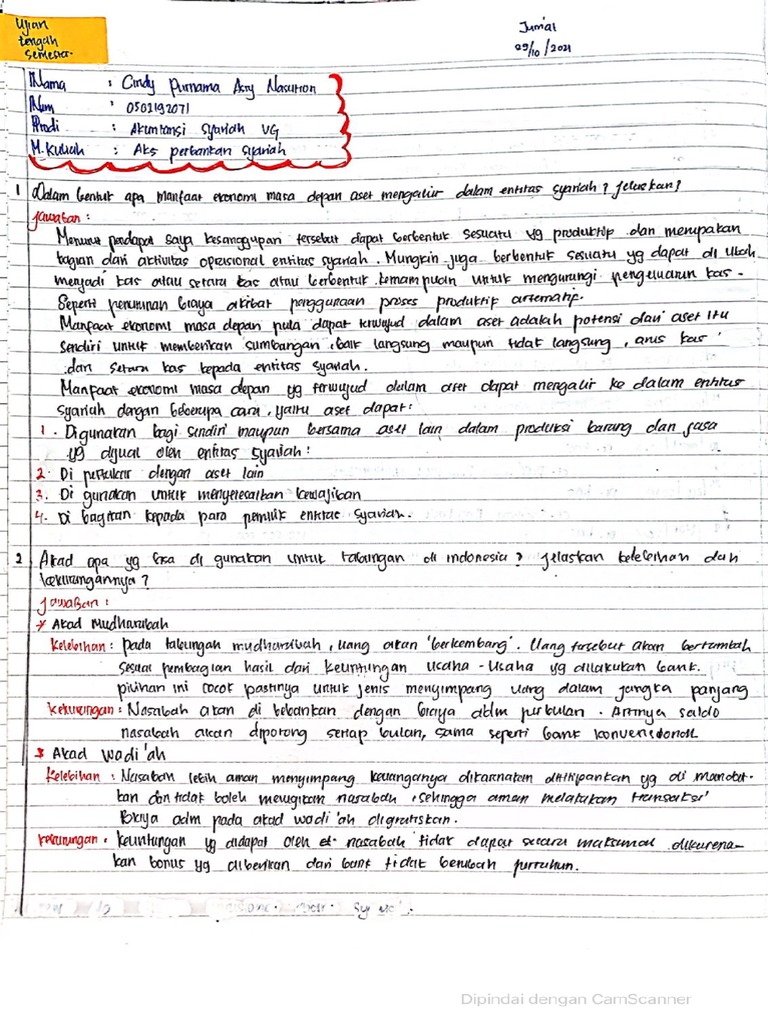 Ujian
tengah
Semester.
Jum'at
29/10/2021
Nama : Cindy Purnama Asry Nasution
Nim : 0502192071
Prodi : Akuntansi Syariah VG
M. Kuliah : Aks perbankan Syariah
1 Dalam bentuk apa manfaat ekonomi masa depan aset mengalir dalam entitas syariah? jelaskan?
Jawaban :
Menurut pendapat saya kesanggupan tersebut dapat berbentuk sesuatu yg produktif dan merupakan
bagian dari aktivitas operasional entitas syariah. Mungkin juga berbentuk sesuatu yg dapat di ubah
menjadi kas atau setara kas atau berbentuk kemampuan untuk mengurangi pengeluaran kas.
Seperti penurunan biaya akibat penggunaan proses produktif
Manfaat ekonomi masa depan pula dapat terwujud dalam aset adalah potensi dari aset itu
sendiri untuk memberikan sumbangan, baik langsung maupun tidak langsung, arus kas
dan setara kas kepada entitas syariah.
Manfaat ekonomi masa depan yg terwujud dalam aset dapat mengalir ke dalam entitas
syariah dengan beberapa cara, yaitu aset dapat:
1. Digunakan bagi sendiri maupun bersama aset lain dalam produksi barang dan jasa
yg dijual oleh entitas syariah:
2. Di pertukar dengan aset lain
3. Di gunakan untuk menyelesaikan kewajiban
4. Di bagikan kepada para pemilik entitas syariah.
2 Akad apa yg bisa di gunakan untuk tabungan di indonesia? jelaskan kelebihan dan
kekurangannya?
Jawaban :
* Akad Mudharabah
Kelebihan : pada tabungan mudharabah, uang akan 'berkembang'. Uang tersebut akan bertambah
Sesuai pembagian hasil dari keuntungan usaha-usaha yg dilakukan bank.
pilihan ini cocok pastinya untuk jenis menyimpang uang dalam jangka panjang
kekurangan : Nasabah akan di bebankan dengan biaya adm perbulan. Artinya saldo
nasabah akan dipotong setiap bulan, sama seperti bank konvensional.
* Akad wadi'ah
Kelebihan : Nasabah lebih aman menyimpang keuanganya dikarnakan yg di
kan dan tidak boleh merugikan nasabah, sehingga aman melakukan transaksi
Biaya adm pada akad wadi'ah digratiskan.
kekurangan : keuntungan yg didapat oleh nasabah tidak dapat secara maksimal dikarena-
kan bonus yg diberikan dari bank tidak berubah pertahun.
Dipindai dengan CamScanner